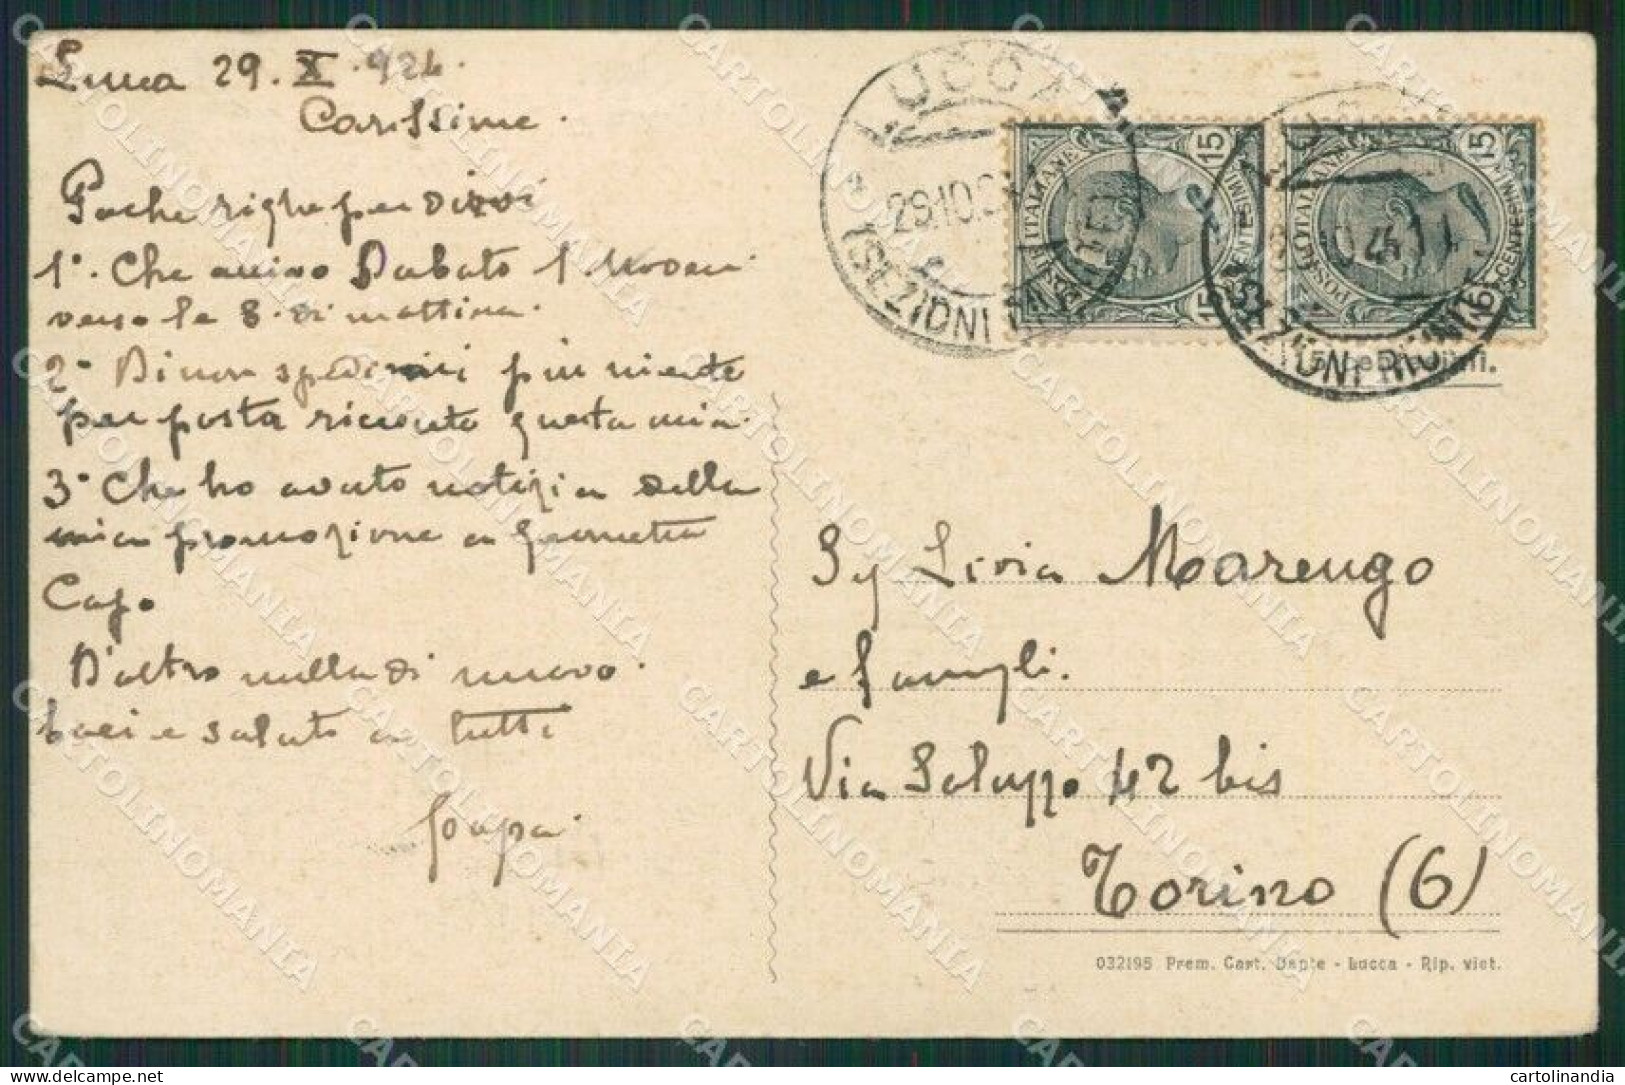 Lucca 29. X. 924.
Carissime.
Poche righe per dirvi
1° Che arrivo Sabato 1 Novem
verso le 8. di mattina.
2° Di non spedirmi più niente
per posta ricevuto questa mia.
3° Che ho avuto notizia della
mia promozione a geometra
Capo
D'altro nulla di nuovo.
baci e saluti a tutti
papà.
LUCCA
29.10.24
(SEZIONI RIUNITE)
POSTE ITALIANE
15
CENTESIMI
15
POSTE ITALIANE
15
CENTESIMI
15
LUCCA
(SEZIONI RIUNITE)
Sig Livia Marengo
e famigli.
Via Saluzzo 42 bis
Torino (6)
032195 Prem. Cart. Dante - Lucca - Rip. viet.
CARTOLINOMANIA
cartolinandia